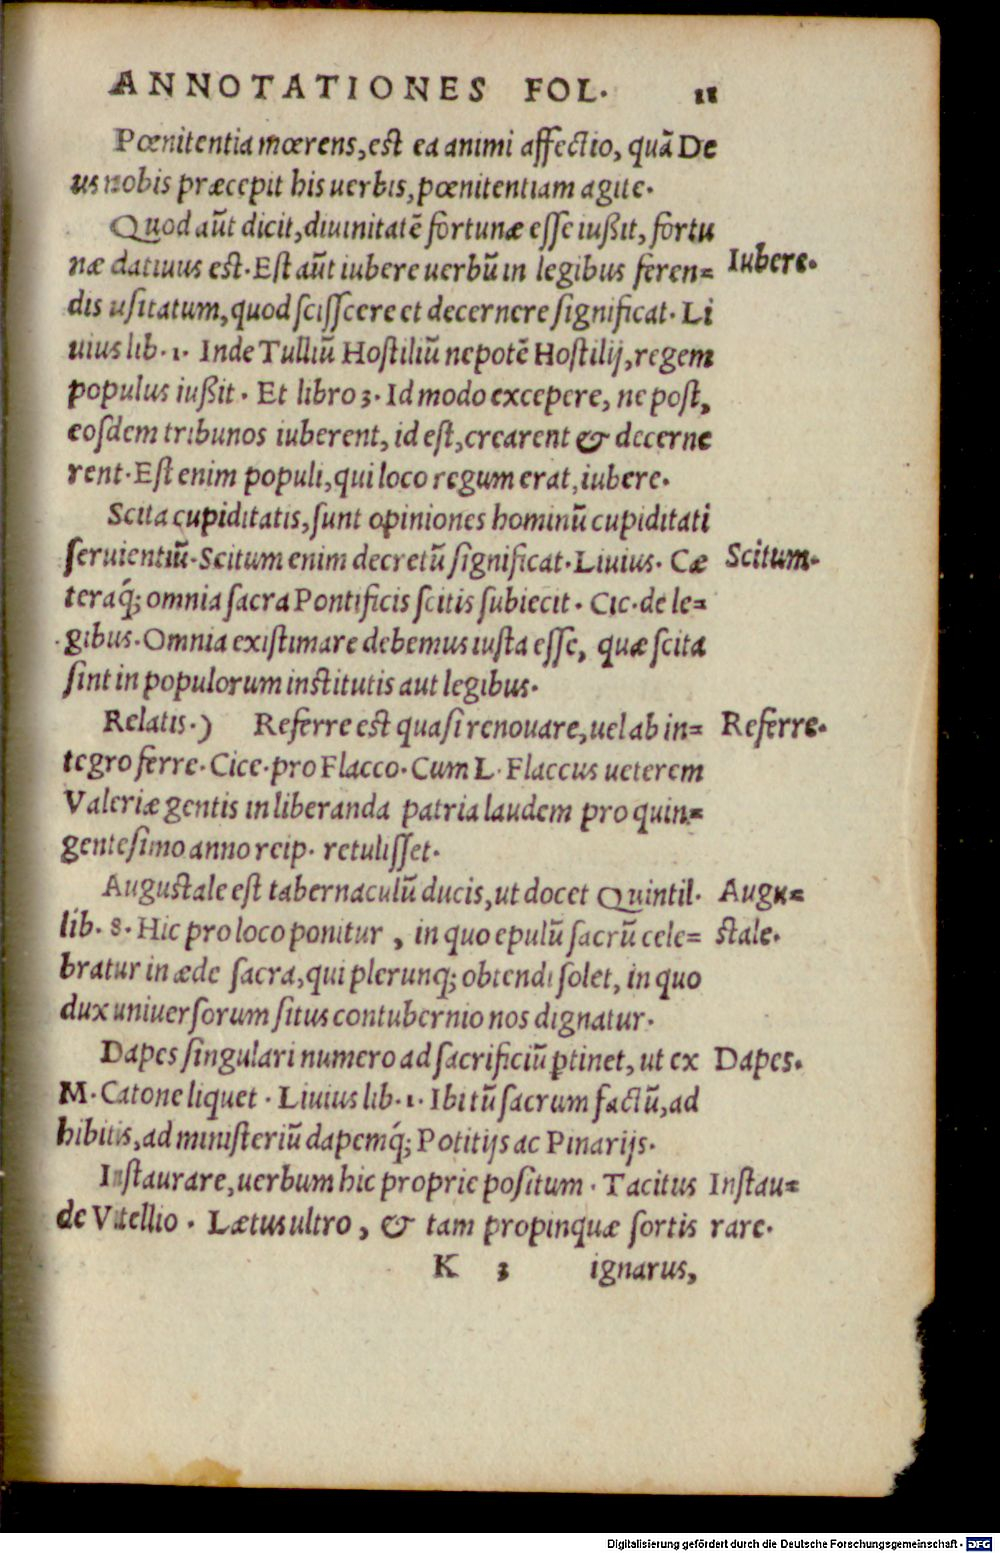 ANNOTATIONES FOL. 11
Pœnitentia mœrens, est ea animi affectio, quā De
us nobis præcepit his uerbis, pœnitentiam agite.
Quod aūt dicit, diuinitatē fortunæ esse iußit, fortu
næ datiuus est. Est aūt iubere uerbū in legibus feren= Iubere.
dis usitatum, quod scisscere et decernere significat. Li
uius lib. 1. Inde Tulliū Hostiliū nepotē Hostilij, regem
populus iußit. Et libro 3. Id modo excepere, ne post,
eosdem tribunos iuberent, id est, crearent & decerne
rent. Est enim populi, qui loco regum erat, iubere.
Scita cupiditatis, sunt opiniones hominū cupiditati
seruientiū. Scitum enim decretū significat. Liuius. Cæ Scitum.
teraq́; omnia sacra Pontificis scitis subiecit. Cic. de le=
gibus. Omnia existimare debemus iusta esse, quæ scita
sint in populorum institutis aut legibus.
Relatis.) Referre est quasi renouare, uel ab in= Referre.
tegro ferre. Cice. pro Flacco. Cum L. Flaccus ueterem
Valeriæ gentis in liberanda patria laudem pro quin=
gentesimo anno reip. retulisset.
Augustale est tabernaculū ducis, ut docet Quintil. Augu=
lib. 8. Hic pro loco ponitur, in quo epulū sacrū cele= stale.
bratur in æde sacra, qui plerunq; obtendi solet, in quo
dux uniuersorum situs contubernio nos dignatur.
Dapes singulari numero ad sacrificiū ꝑtinet, ut ex Dapes.
M. Catone liquet. Liuius lib. 1. Ibi tū sacrum factū, ad
hibitis, ad ministeriū dapemq́; Potitijs ac Pinarijs.
Instaurare, uerbum hic proprie positum. Tacitus Instau=
de Vitellio. Lætus ultro, & tam propinquæ sortis rare.
K 3 ignarus,
Digitalisierung gefördert durch die Deutsche Forschungsgemeinschaft - DFG